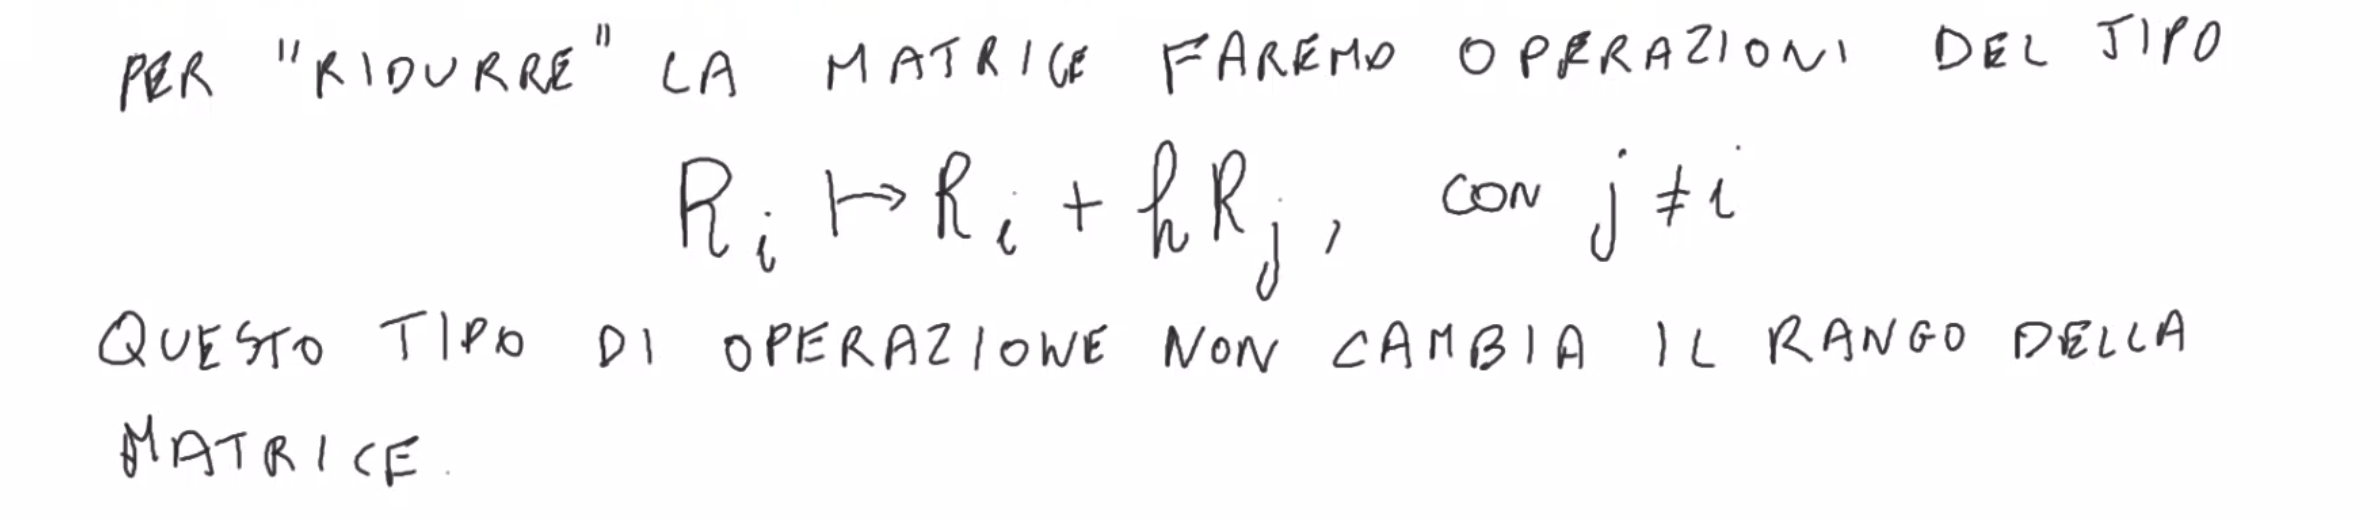 PER "RIDURRE" LA MATRICE FAREMO OPERAZIONI DEL TIPO
R_i ↦ R_i + hR_j, CON j ≠ i
QUESTO TIPO DI OPERAZIONE NON CAMBIA IL RANGO DELLA
MATRICE.